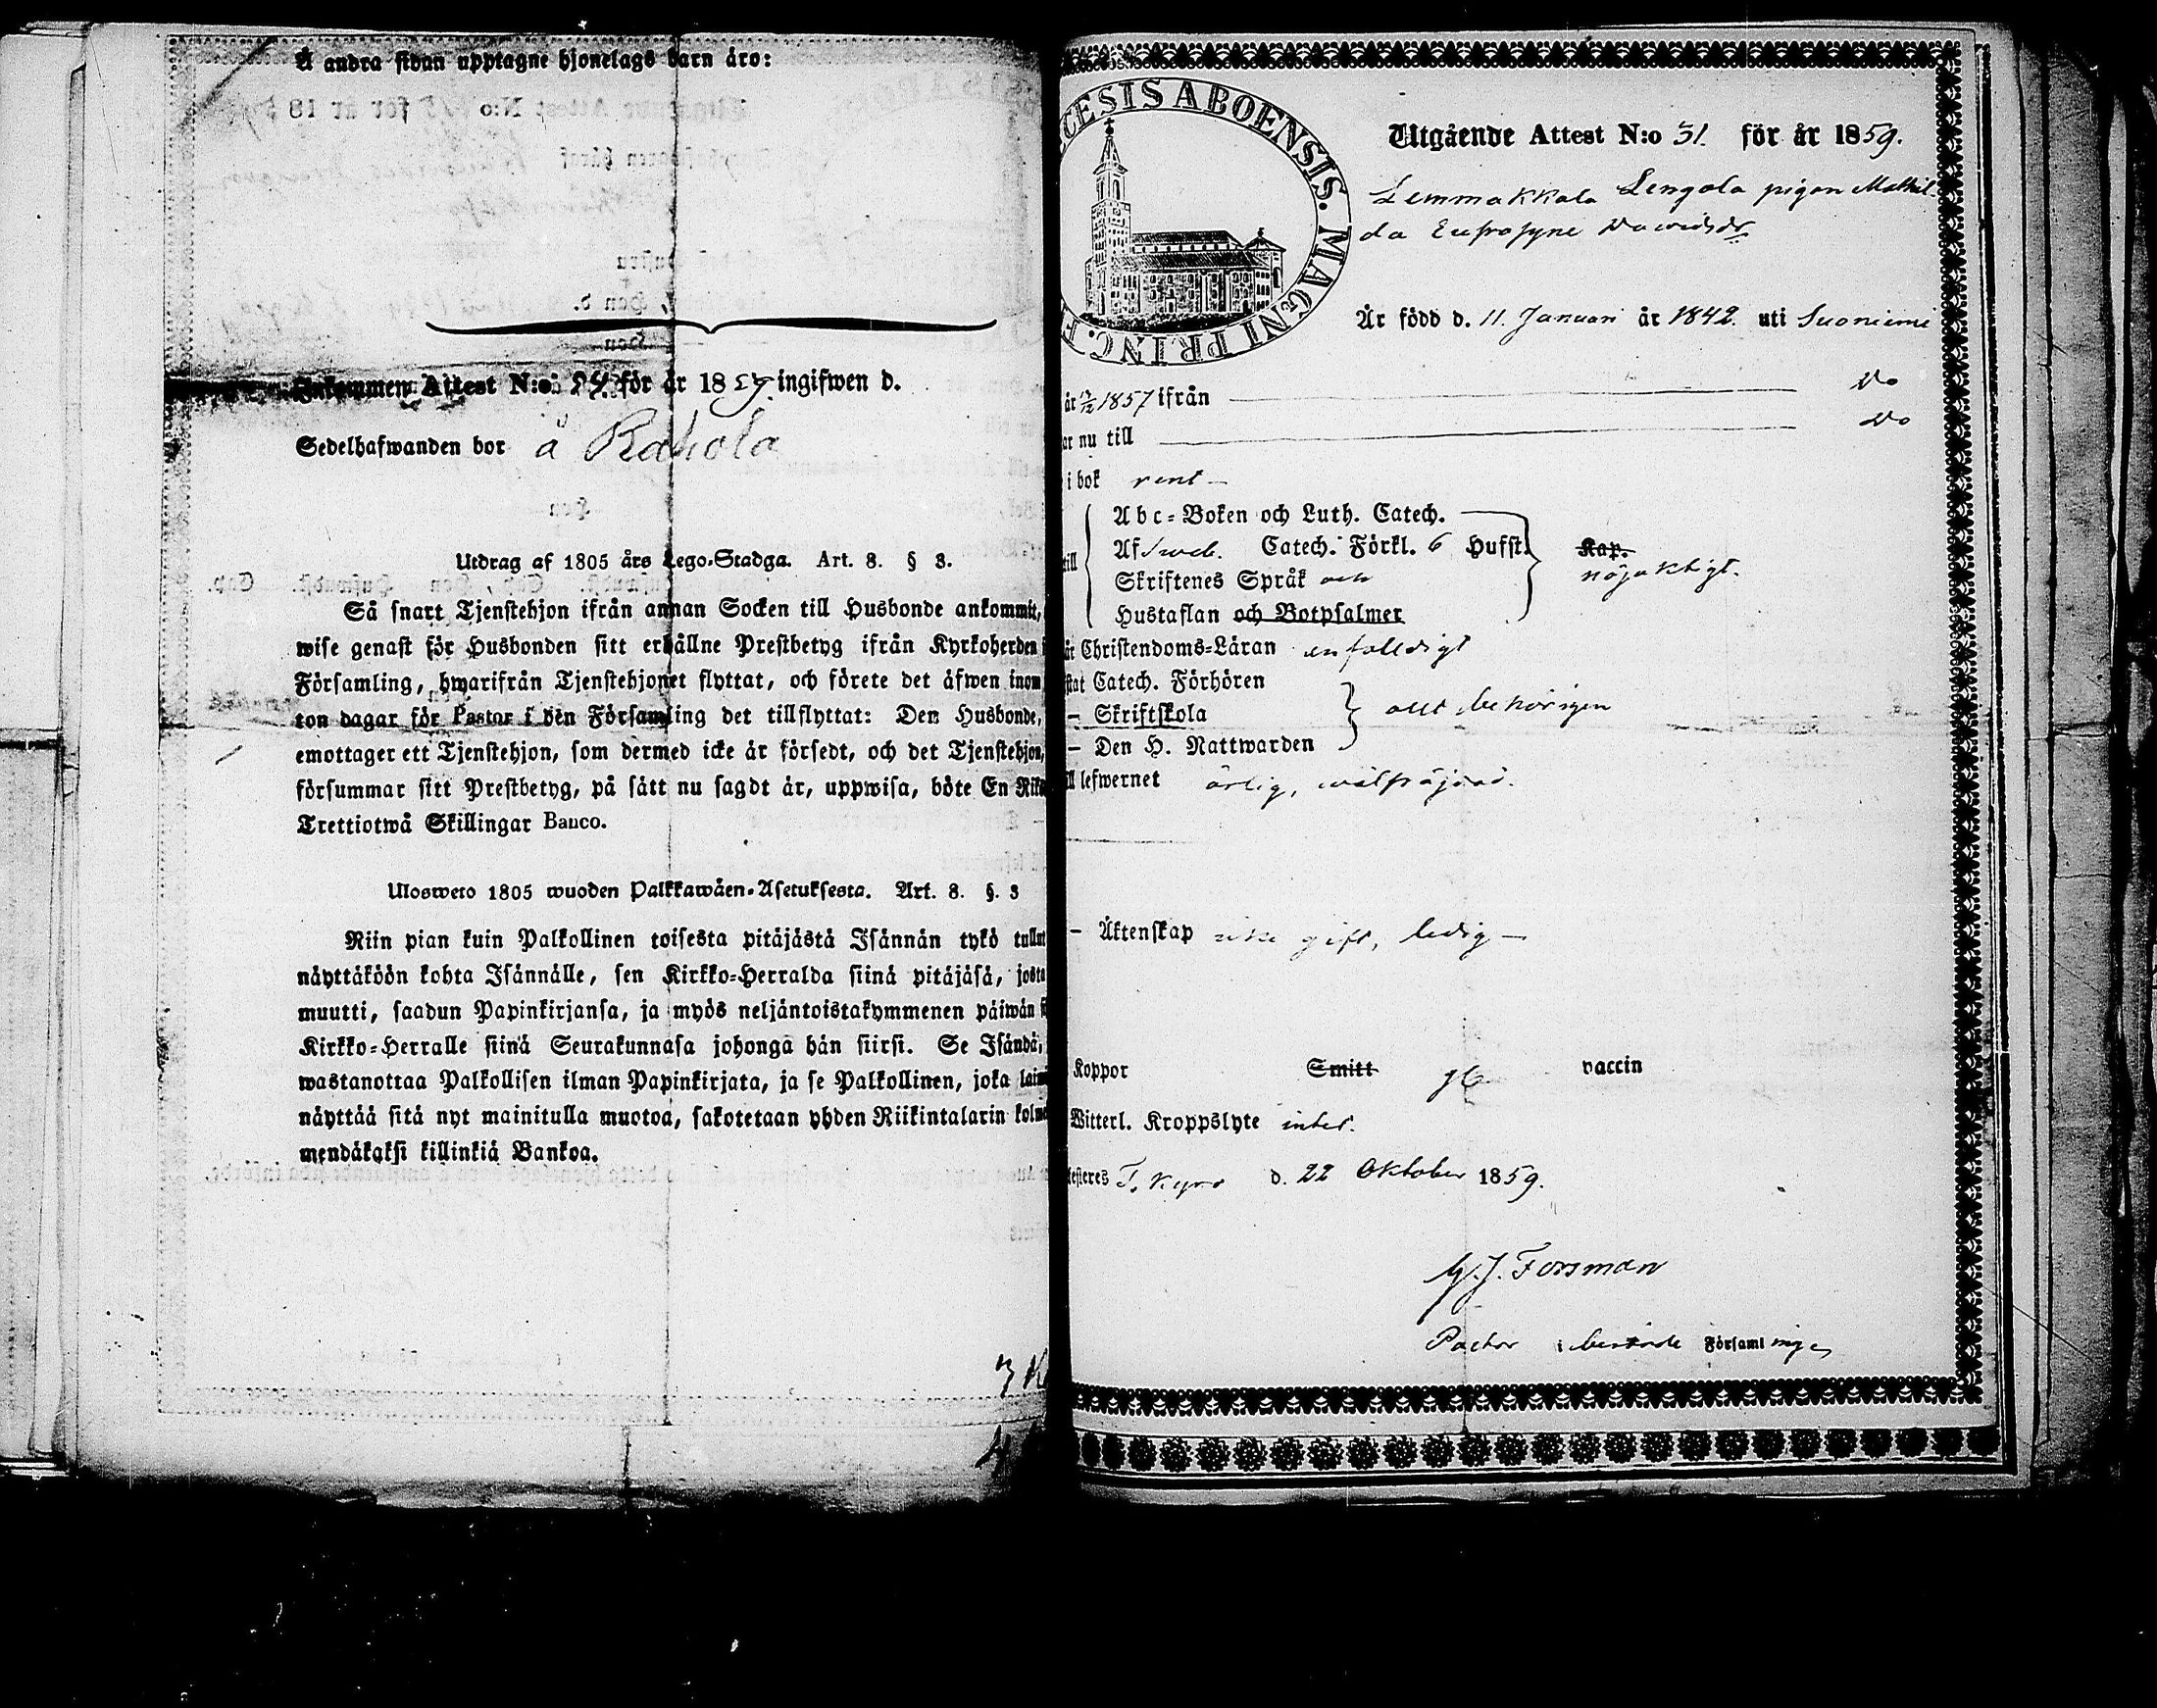 Å andra sidan upptagne hjonelags barn äro:
Inkommen Attest N:o 54 för år 1859 ingifwen d.
Sedelhafwanden bor å Rahola
Utdrag af 1805 års Lego-Stadga. Art. 8. § 3.
Så snart Tjenstehjon ifrån annan Socken till Husbonde ankommit,
wise genast för Husbonden sitt erhållne Prestbetyg ifrån Kyrkoherden
Församling, hwarifrån Tjenstehjonet flyttat, och förete det äfwen inom
ton dagar för Pastor i den Församling det tillflyttat: Den Husbonde,
emottager ett Tjenstehjon, som dermed icke är försedt, och det Tjenstehjon,
försummar sitt Prestbetyg, på sätt nu sagdt är, uppwisa, böte En Riks
Trettiotwå Skillingar Banco.
Ulosweto 1805 wuoden Palkkawäen-Asetuksesta. Art. 8. §. 3
Niin pian kuin Palkollinen toisesta pitäjästä Isännän tykö tullut
näyttäköön kohta Isännälle, sen Kirkko-Herralda siinä pitäjäsä, josta
muutti, saadun Papinkirjansa, ja myös neljäntoistakymmenen päiwän
Kirkko-Herralle siinä Seurakunnasa johonga hän siirsi. Se Isändä,
wastanottaa Palkollisen ilman Papinkirjata, ja se Palkollinen, joka
näyttää sitä nyt mainitulla muotoa, sakotetaan yhden Riikintalarin kolme
mendäkaksi killinkiä Bankoa.
CESIS ABOENSIS. MAGNI PRINC. F
Utgående Attest N:o 31. för år 1859.
Lemmakkala Lengola pigan Mathil-
da Eufrosyne Davidsdr
Är född d. 11. Januari år 1842. uti Suoniemi
år 1857 ifrån Do
nu till Do
i bok rent
Abc-Boken och Luth. Catech.
Af Sweb. Catech. Förkl. 6 Hufst. Kap.
till Skriftenes Språk och nöjaktigt.
Hustaflan och Botpsalmer
Christendoms-Läran enfaldigt
Catech. Förhören
- Skriftskola allt behörigen
- Den H. Nattwarden
lefwernet ärlig, wälfräjdad.
- Äktenskap icke gift, ledig
Koppor Smitt vaccin
Witterl. Kroppslyte intet.
T. Kyro d. 22 Oktober 1859.
G. J. Forsman
Pastor i berörde Församlingen